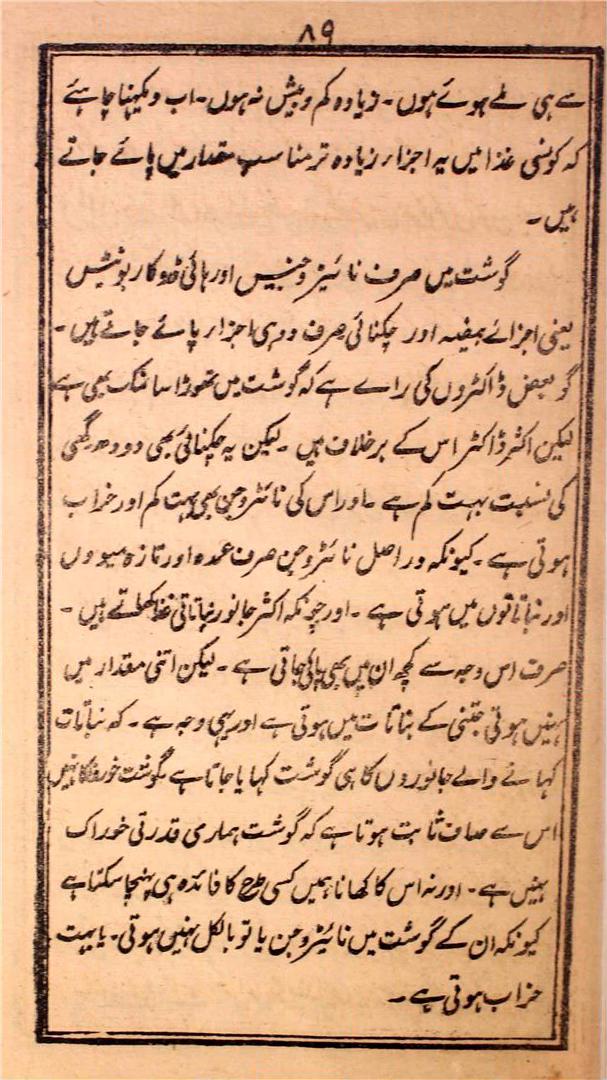 ۸۹
سے ہی ملے ہوئے ہوں۔ زیادہ کم و بیش نہ ہوں۔ اب دیکہنا چاہئے
کہ کونسی غذا میں یہ اجزاء زیادہ تر مناسب مقدار میں پائے جاتے
ہیں۔
گوشت میں صرف نائیٹروجنیس اور ہائی ڈروکاربونیٹس
یعنی اجزائے بیضیہ اور چکنائی صرف دو ہی اجزا پائے جاتے ہیں۔
گو بعض ڈاکٹروں کی رائے ہے کہ گوشت میں تھوڑا سا نمک بھی ہے
لیکن اکثر ڈاکٹر اس کے برخلاف ہیں۔ لیکن یہ چکنائی بھی دودھ گھی
کی نسبت بہت کم ہے۔ اور اس کی نائٹروجن بھی بہت کم اور خراب
ہوتی ہے۔ کیونکہ دراصل نائٹروجن صرف عمدہ اور تازہ میووں
اور نباتاتوں میں ہوتی ہے۔ اور چونکہ اکثر جانور نباتاتی غذا کھاتے ہیں۔
صرف اس وجہ سے کچھ ان میں بھی پائی جاتی ہے۔ لیکن اتنی مقدار میں
نہیں ہوتی جتنی کے بناتات میں ہوتی ہے اور یہی وجہ ہے۔ کہ نباتات
کہانے والے جانوروں کا ہی گوشت کہایا جاتا ہے گوشت خوروں کا نہیں
اس سے صاف ثابت ہوتا ہے کہ گوشت ہماری قدرتی خوراک
نہیں ہے۔ اور نہ اس کا کھانا ہمیں کسی طرح کا فائدہ ہی پہنچا سکتا ہے
کیونکہ ان کے گوشت میں نائیٹروجن یا تو بالکل نہیں ہوتی۔ یا بہت
خراب ہوتی ہے۔